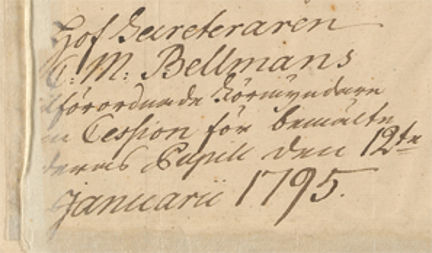 Hof Secreteraren
C: M: Bellmans
förordnade Förmyndere
Cession för bemälte
deras Pupill den 12te
Januarii 1795.